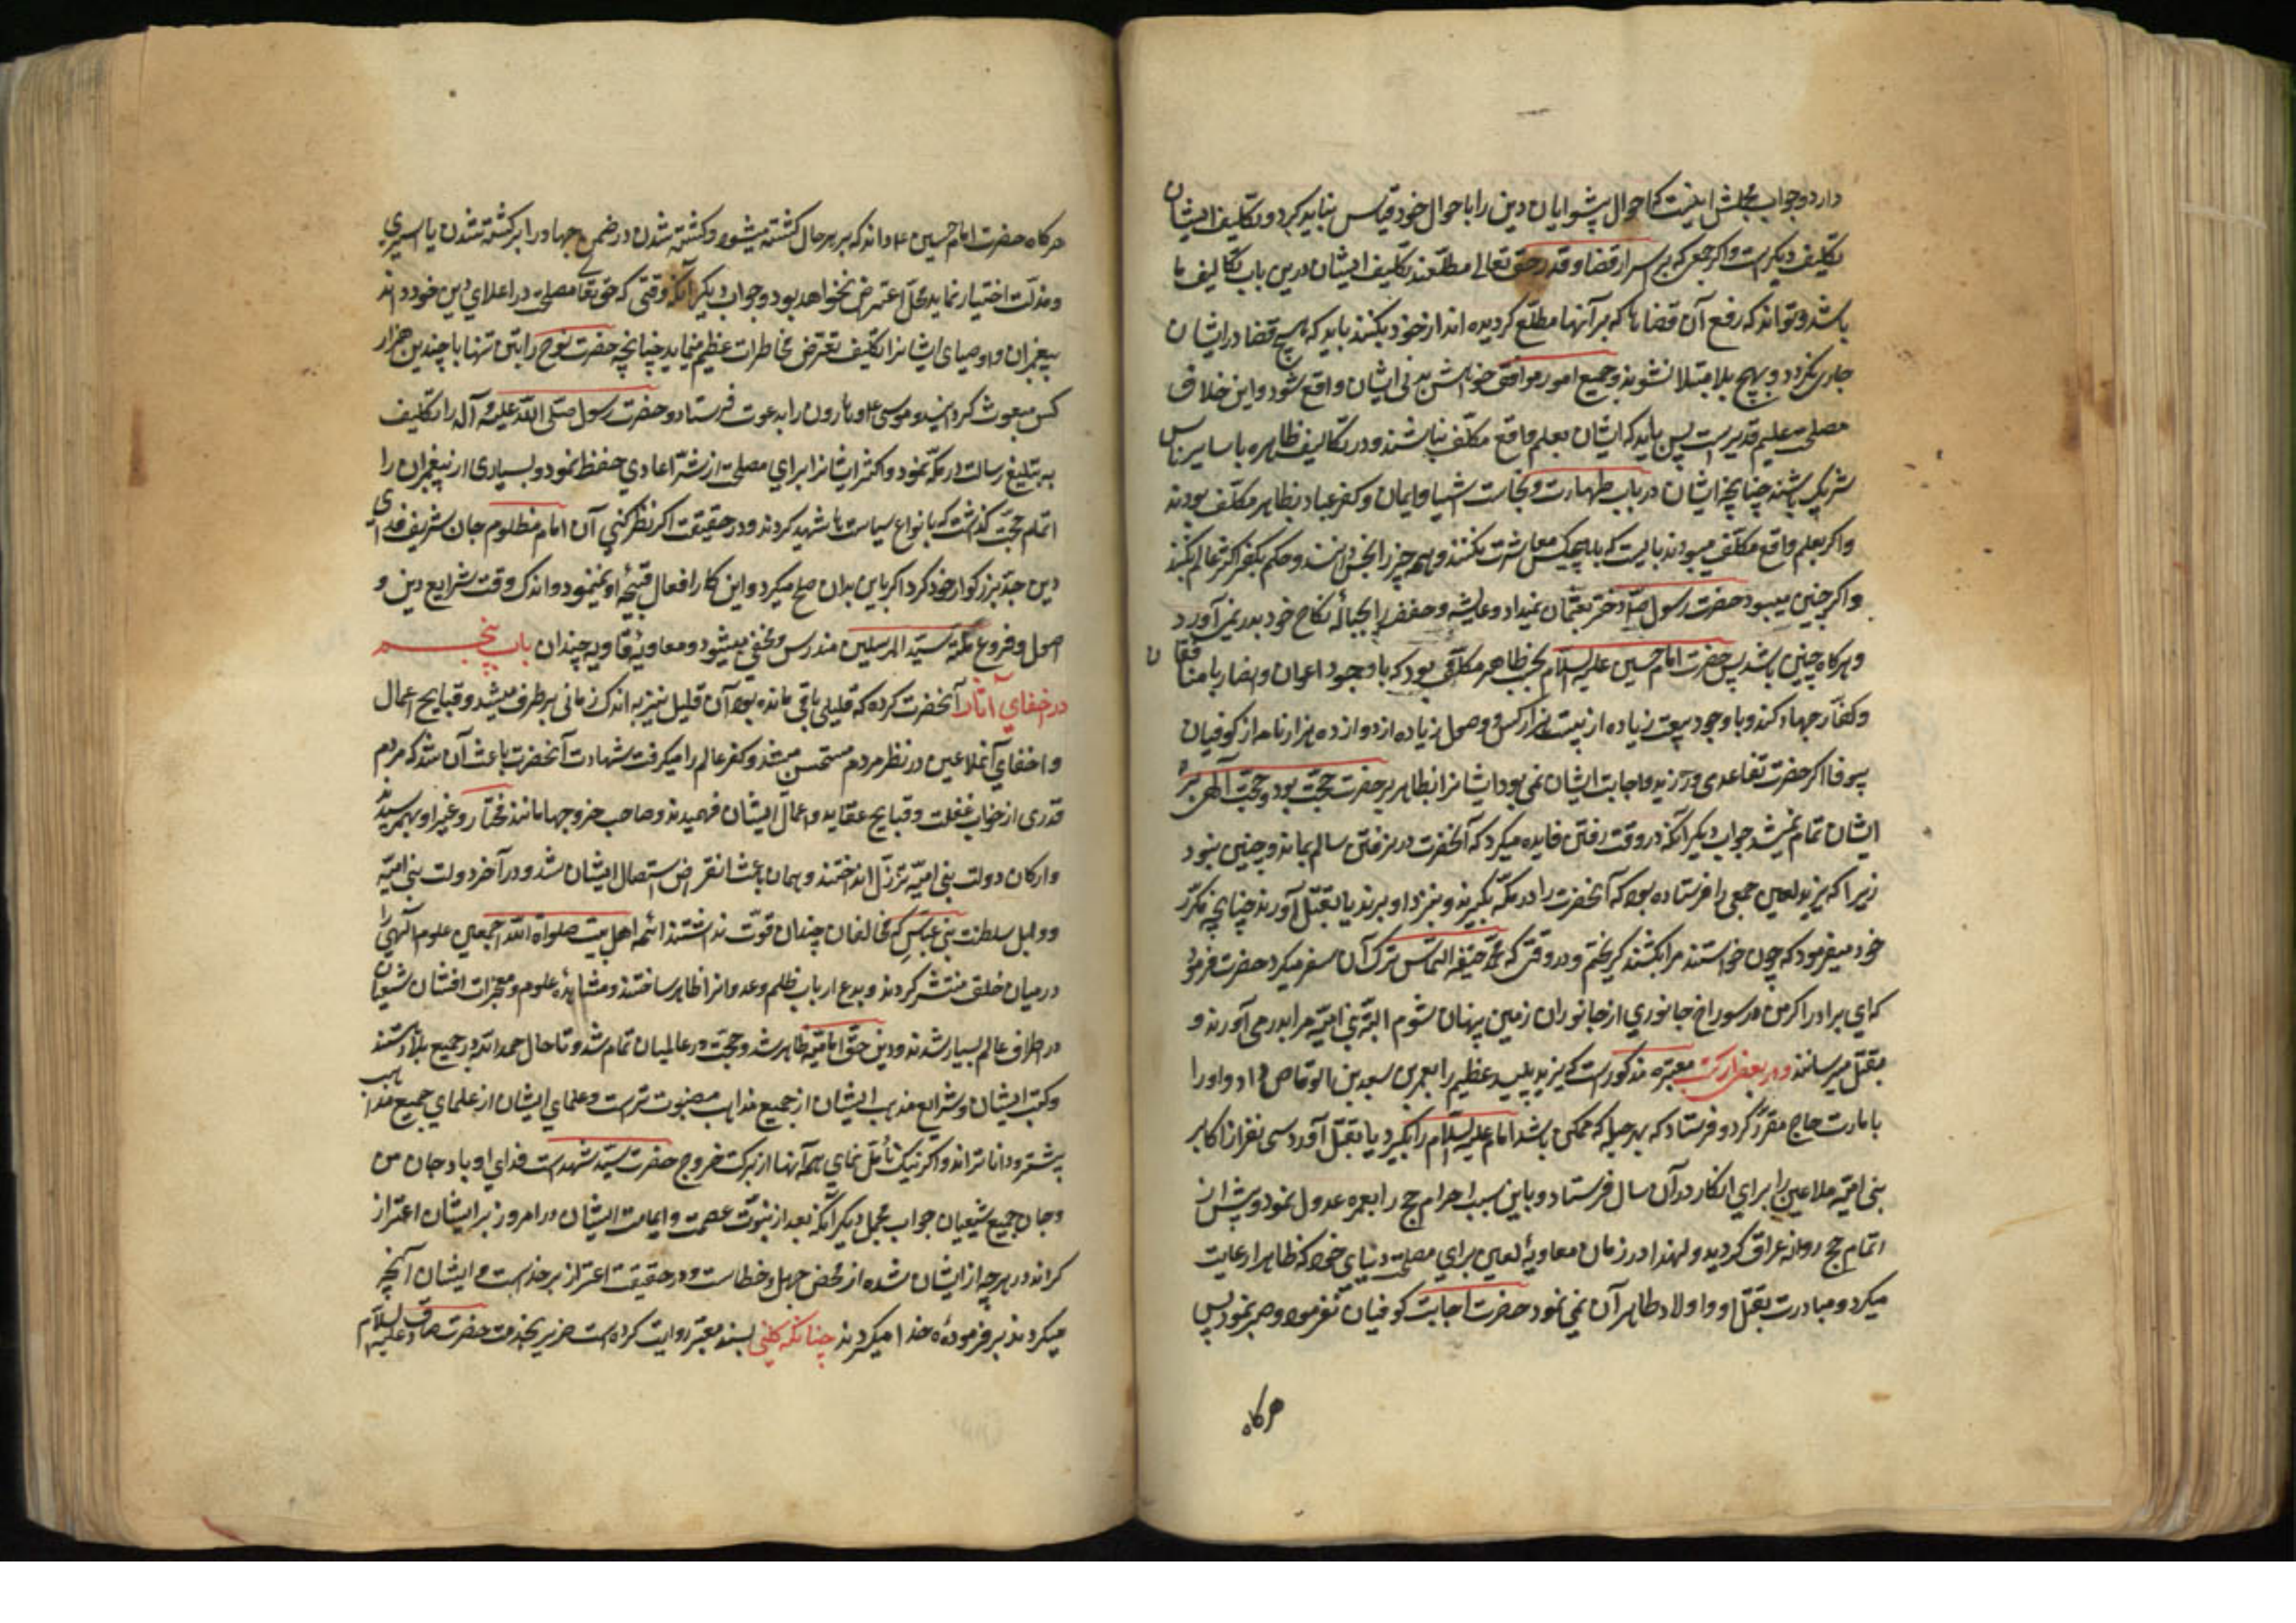 دارد و جواب مجملش اینست که احوال پیشوایان دین را باحوال خود قیاس نباید کرد و تکلیف ایشان
تکلیف دیگر است و اگر جمعی که بر اسرار قضا و قدر حق تعالی مطلعند تکلیف ایشان درین باب تکالیف ما
باشد و تواند که رفع آن قضاها که بر آنها مطلع گردیده اند از خود بکنند باید که هیچ قضا در ایشان
جاری نگردد و بهیچ بلا مبتلا نشوند و جمیع امور موافق خواهش بدنی ایشان واقع شود و این خلاف
مصلحت علیم قدیر است پس باید که ایشان بعلم واقع مکلف نباشند و در تکالیف ظاهره با سایر ناس
شریک باشند چنانچه ایشان در باب طهارت و نجاست اشیا و ایمان و کفر عباد بظاهر مکلف بودند
و اگر بعلم واقع مکلف میبودند بایست که با هیچکس معاشرت نکنند و همه چیز را نجس دانند و حکم بکفر اکثر عالم بکنند
و اگر چنین میبود حضرت رسول ص دختر بعثمان نمیداد و عایشه و حفصه را بحباله نکاح خود بدر نمی آورد
و هرگاه چنین باشد پس حضرت امام حسین علیه السلام بحسب ظاهر مکلف بود که با وجود اعوان و انصار با منافقان
و کفار جهاد کند و با وجود بیعت زیاده از بیست هزار کس و وصول زیاده از دوازده هزار نامه از کوفیان
بیوفا اگر حضرت تقاعدی ورزید و اجابت ایشان نمی بود ایشانرا بظاهر بر حضرت حجت بود و حجت الهی بر
ایشان تمام نمیشد جواب دیگر آنکه در وقت رفتن فایده میکرد که آنحضرت در نرفتن سالم بماند و چنین نبود
زیرا که یزید لعین جمعی را فرستاده بود که آنحضرت را در مکه بگیرند و بنزد او برند یا بقتل آورند چنانچه مکرر
خود میفرمود که چون خواستند مرا بکشند گریختم و در وقتی که محمد حنفیه التماس ترک آن سفر میکرد حضرت فرمود
که ای برادر اگر من در سوراخ جانوری از جانوران زمین پنهان شوم البته بنی امیه مرا بدر می آورند و
بقتل میرسانند و در بعضی از کتب معتبره مذکور است که یزید پلید عظیم را بعمر بن سعد بن ابی وقاص داد و او را
بامارت حاج مقرر کرد و فرستاد که بهر حیله که ممکن باشد امام علیه السلام را بگیرد یا بقتل آورد و سی نفر از اکابر
بنی امیه ملاعین را برای انکار در آن سال فرستاد و باین سبب احرام حج را بعمره عدول نمود و پیش از
اتمام حج روانه عراق گردید و لهذا در زمان معاویه لعین برای مصلحت دنیای خود که ظاهرا رعایت
میکرد و مبادرت بقتل او و اولاد طاهر آن نمی نمود حضرت اجابت کوفیان نفرمود و صبر نمود پس
هرگاه
هرگاه حضرت امام حسین ع داند که بر هر حال کشته میشود و کشته شدن در ضمن جهاد را بر کشته شدن با اسیری
و مذلت اختیار نماید محل اعتراض نخواهد بود و جواب دیگر آنکه وقتی که حق تعالی مصلحت در اعلای دین خود داند
پیغمبران و اوصیای ایشانرا تکلیف تعرض مخاطرات عظیم مینماید چنانچه حضرت نوح را بتن تنها با چندین هزار
کس مبعوث گردانید و موسی ع و هارون را بدعوت فرستاد و حضرت رسول صلی الله علیه و آله را تکلیف
به تبلیغ رسالت در مکه نمود و اکثر ایشانرا برای مصلحت از شر اعادی حفظ نمود و بسیاری از پیغمبران را
اتمام حجت گذاشت که بانواع سیاست ها شهید کردند و در حقیقت اگر نظر کنی آن امام مظلوم جان شریف فدای
دین جد بزرگوار خود کرد اگر با یزید ان صلح میکرد و این کار افعال قبیحه او نمینمود و اندک وقت شرایع دین و
اصول و فروع ملت سید المرسلین مندرس و مخفی میشود و معاویه غاویه چندان باب پنجم
در اخفای آثار آنحضرت کرده که قلیلی باقی مانده بود آن قلیل نیز به اندک زمانی برطرف میشد و قبایح اعمال
و اخفای آن ملاعین در نظر مردم مستحسن میشد و کفر عالم را میگرفت شهادت آنحضرت باعث آن شد که مردم
قدری از خواب غفلت و قبایح عقاید و اعمال ایشان فهمیدند و صاحب خروجها مانند مختار و غیر او بهم رسیدند
و ارکان دولت بنی امیه تزلزل انداختند و همان باعث انقراض و استیصال ایشان شد و در آخر دولت بنی امیه
و اوایل سلطنت بنی عباس که مخالفان چندان قوت نداشتند ائمه اهل بیت صلوات الله اجمعین علوم الهی را
در میان خلق منتشر کردند و بدع ارباب ظلم و عدوانرا ظاهر ساختند و مشاهده علوم و معجزات ایشان شیعیان
در اطراف عالم بسیار شدند و دین حق امامیه ظاهر شد و حجت در عالمیان تمام شد و تا حال حمد الله در جمیع بلاد هستند
و کتب ایشان و شرایع مذهب ایشان از جمیع مذاهب مضبوت تر است و علمای ایشان از علمای جمیع مذاهب
بیشتر و داناتراند و اگر نیک تأمل نمای همه آنها از برکت خروج حضرت سید شهداست فدای او باد جان من
و جان جمیع شیعیان جواب مجمل دیگر آنکه بعد از نبوت عصمت و امامت ایشان در امروز بر ایشان اعتراز
کراند در هر چه از ایشان شده از محض جهل و خطاست و در حقیقت اعتراز بر خداست و ایشان آنچه
میکردند بر فرموده خدا میکردند چنانکه کلینی بسند معتبر روایت کرده است حزیر بخدمت حضرت صادق علیه السلام